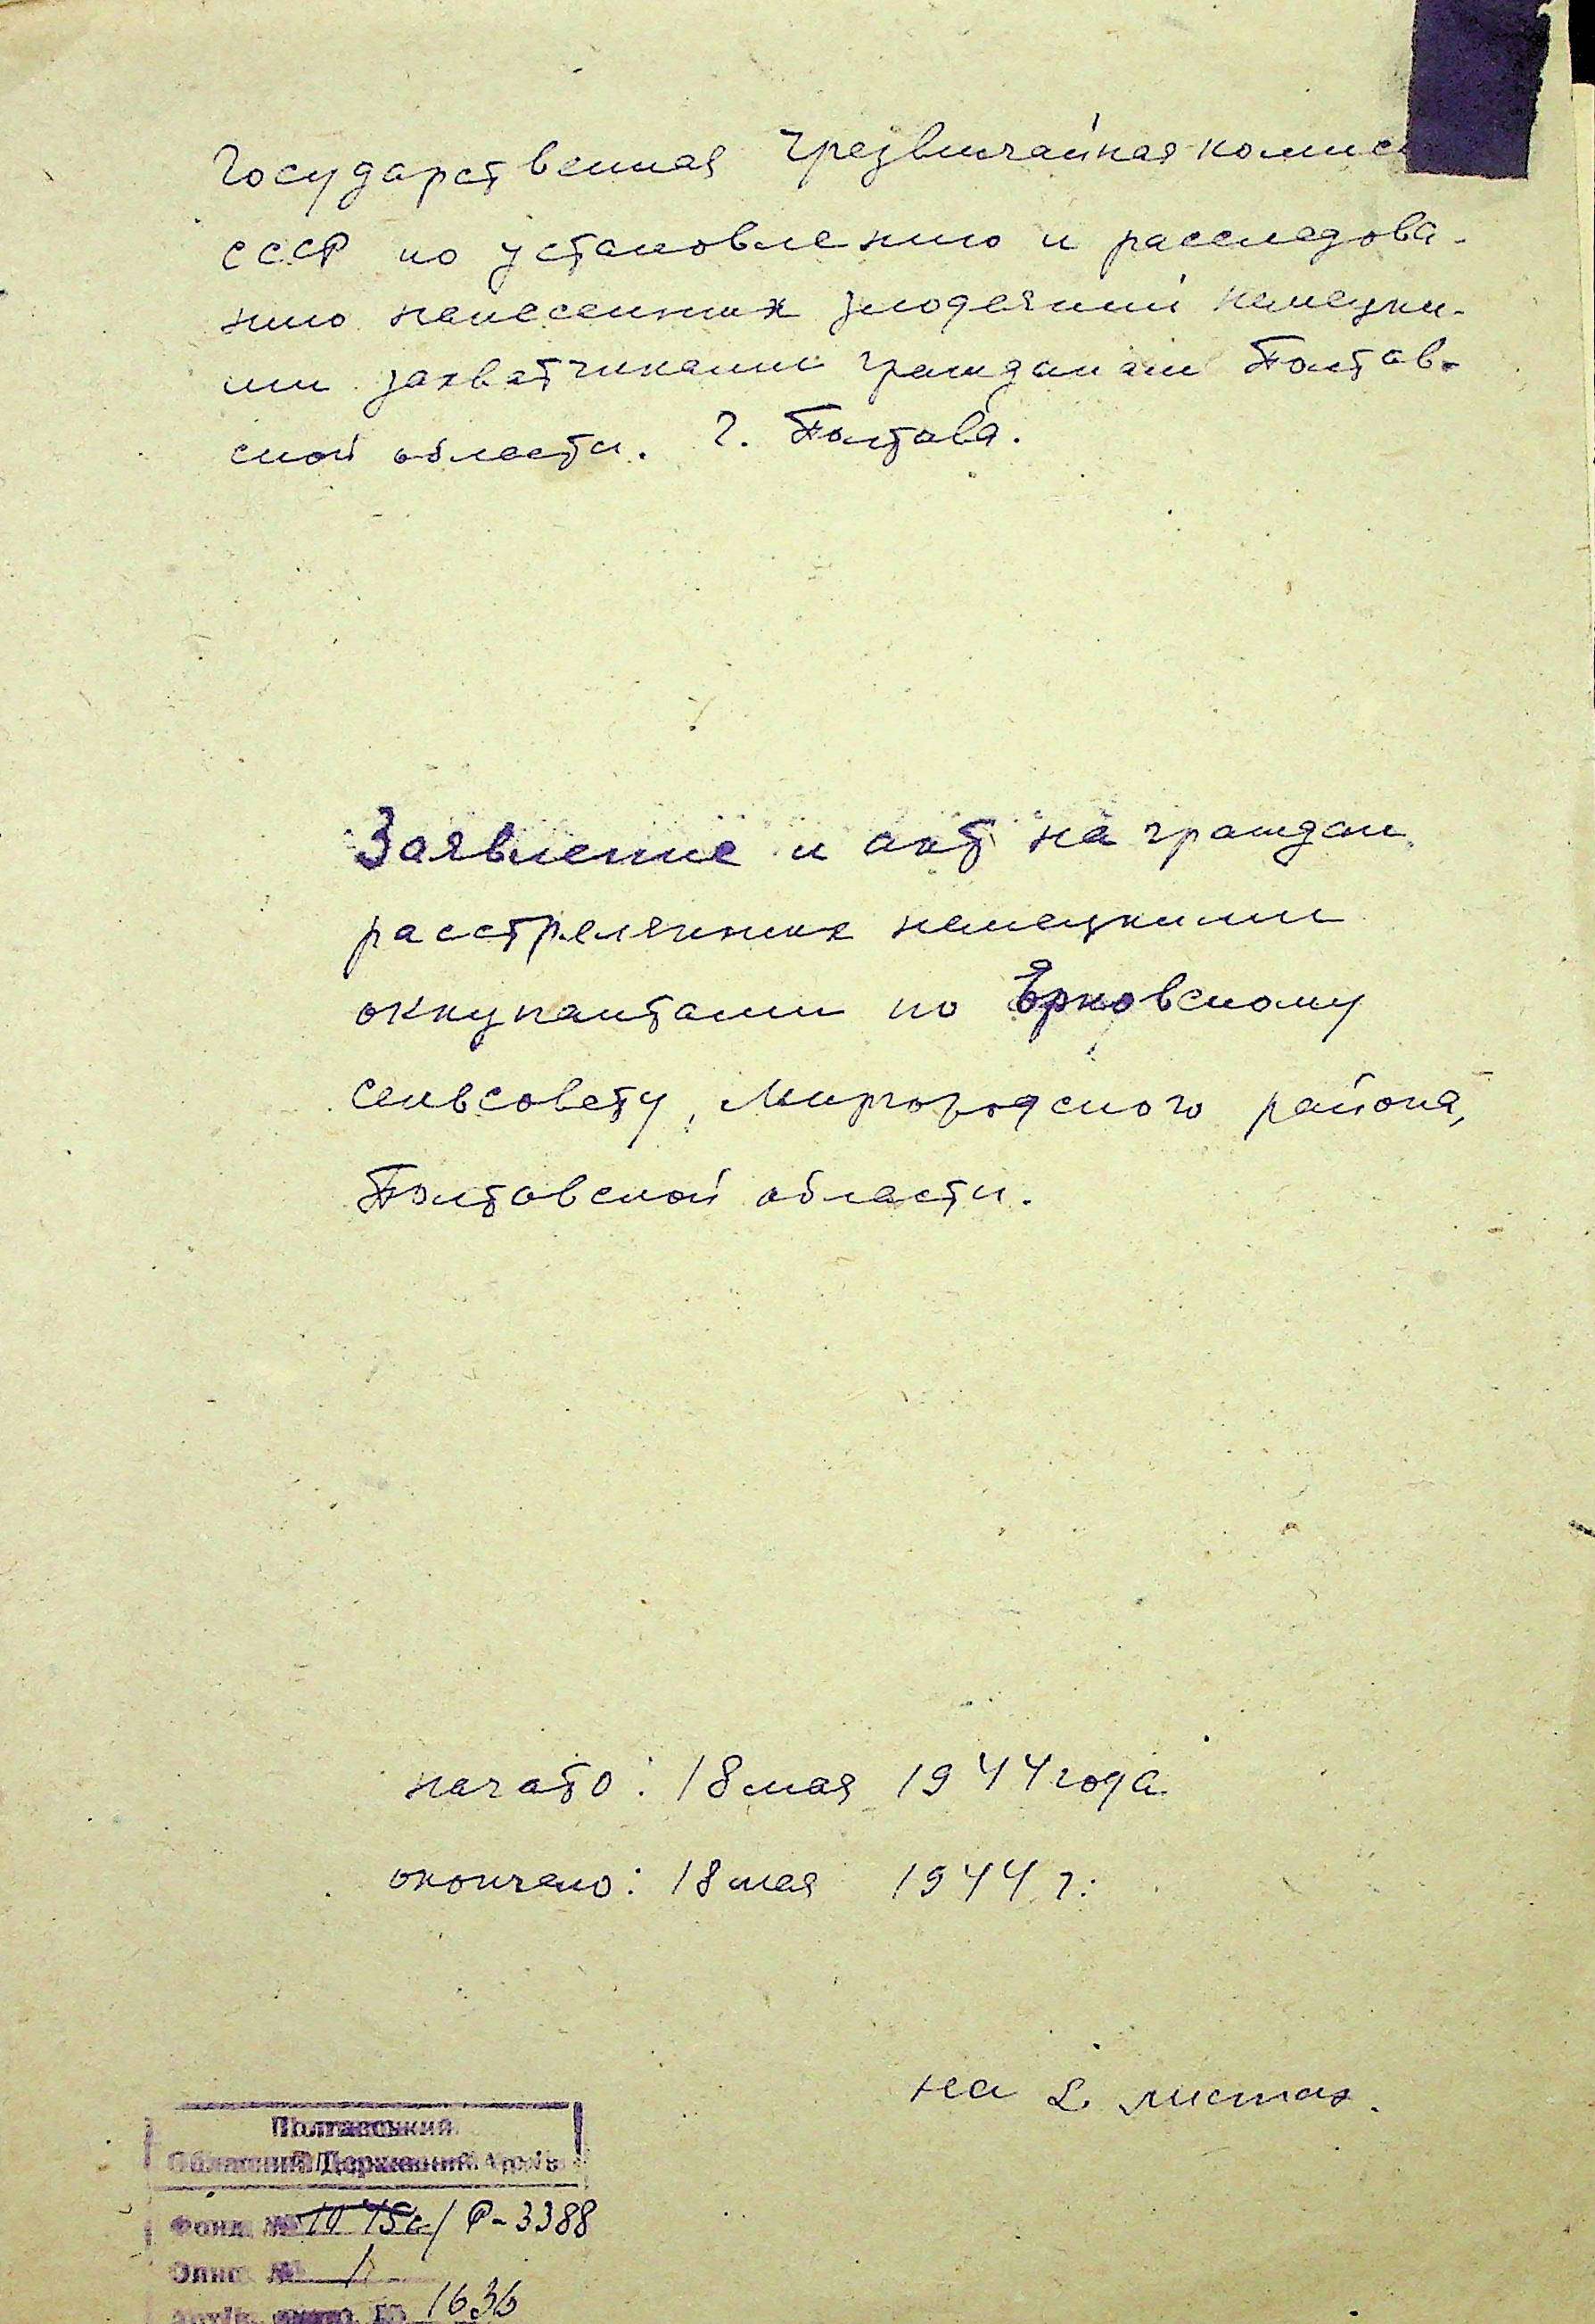 Государственная Чрезвычайная комисс
СССР по установлению и расследова-
нию нанесенных злодеяний немецки-
ми захватчиками гражданам Полтав-
ской области. г. Полтава.
Заявление и акт на граждан,
расстрелянных немецкими
оккупантами по Ерковскому
сельсовету, Миргородского района,
Полтавской области.
начато: 18 мая 1944 года
окончено: 18 мая 1944 г.
на 2 листах.
Полтавський
Обласний Державний Архів
Фонд № 1045с/ Р-3388
Опис № 1
1636